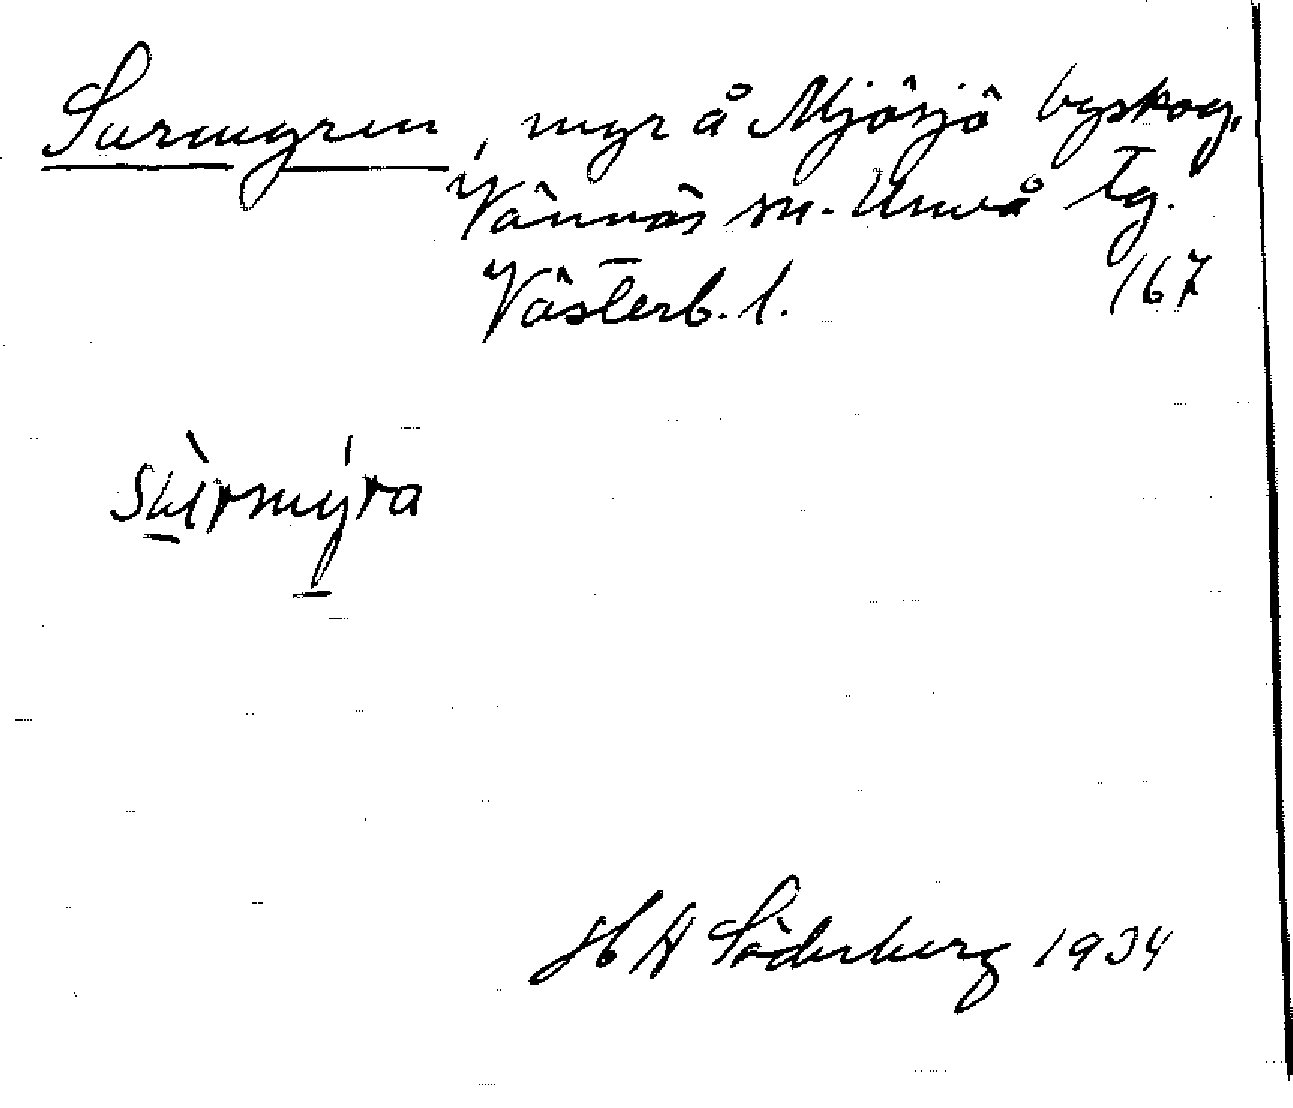 Surmyren, myr å Mjösjö byskog,
Vännäs sn. Umeå tg.
Västerb. l. 167
sʉ̀rmýra
H A Söderberg 1934